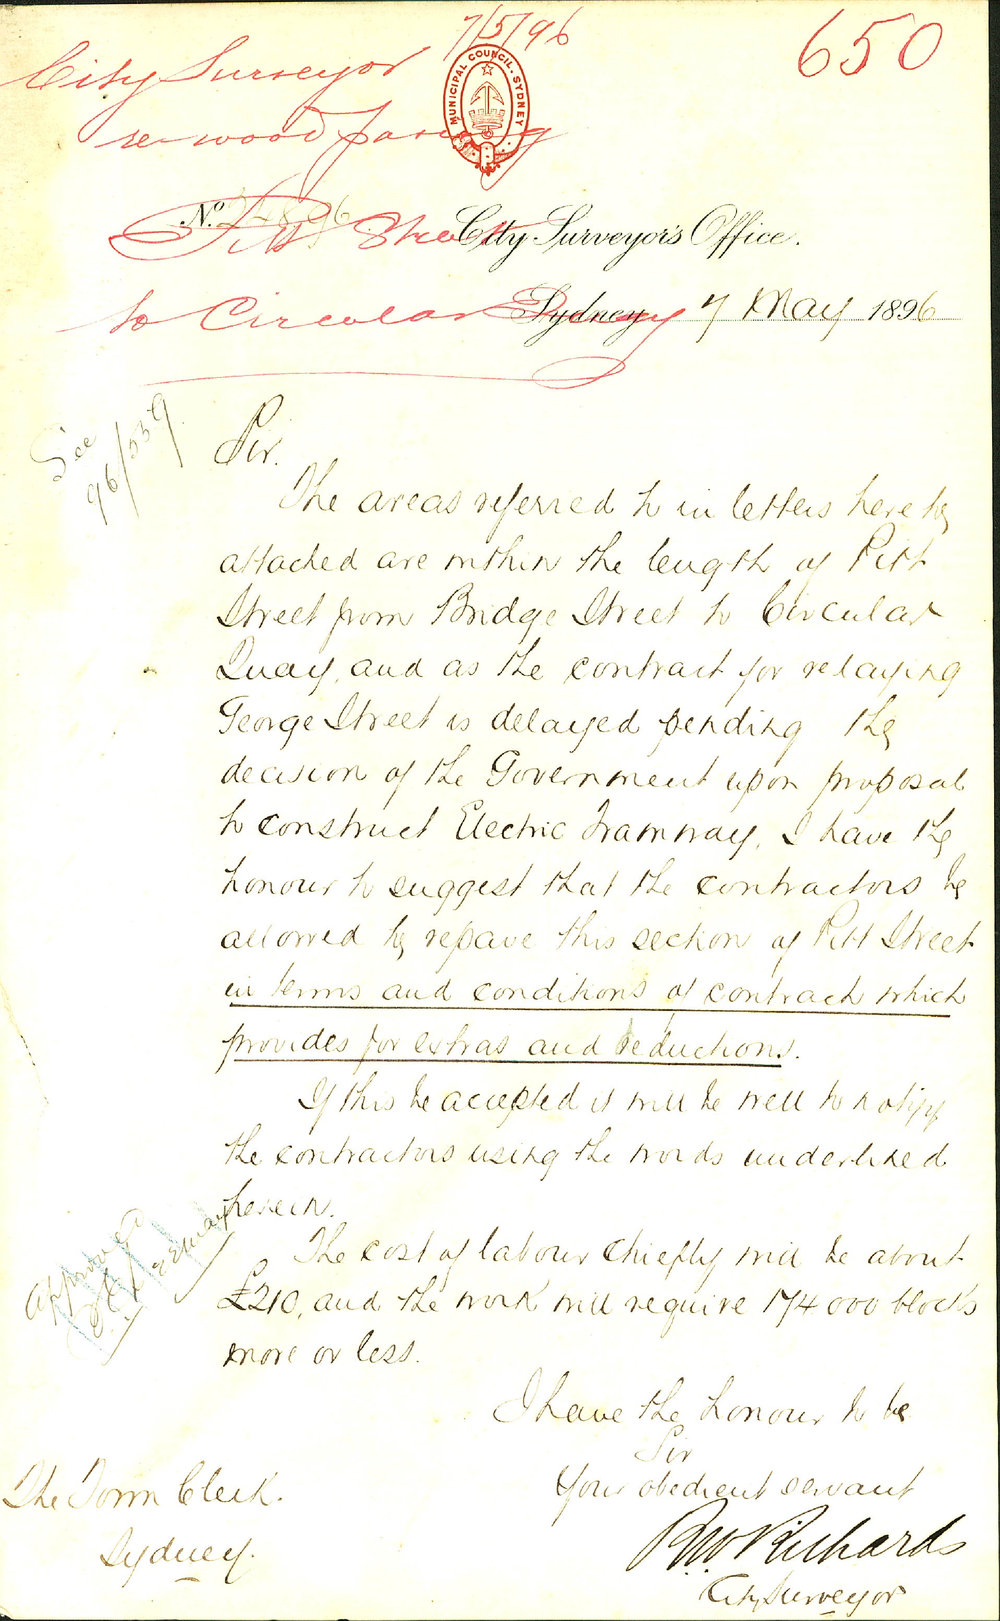 7/5/96
650
City Surveyor
re wood paving
Pitt Street
to Circular Quay
MUNICIPAL COUNCIL. SYDNEY
No.
City Surveyor's Office.
Sydney 7 May 1896
See
96/539
Sir.
The areas referred to in letters hereto
attached are within the length of Pitt
Street from Bridge Street to Circular
Quay, and as the contract for relaying
George Street is delayed pending the
decision of the Government upon proposal
to construct Electric Tramway, I have the
honour to suggest that the contractors be
allowed to repave this section of Pitt Street
in terms and conditions of contract which
provides for extras and deductions.
If this be accepted it will be well to notify
the contractors using the words underlined
herein.
The cost of labour chiefly will be about
£210, and the work will require 174 000 blocks
more or less.
Approved
I have the honour to be
Sir
Your obedient servant
RWRichards
City Surveyor
The Town Clerk.
Sydney.